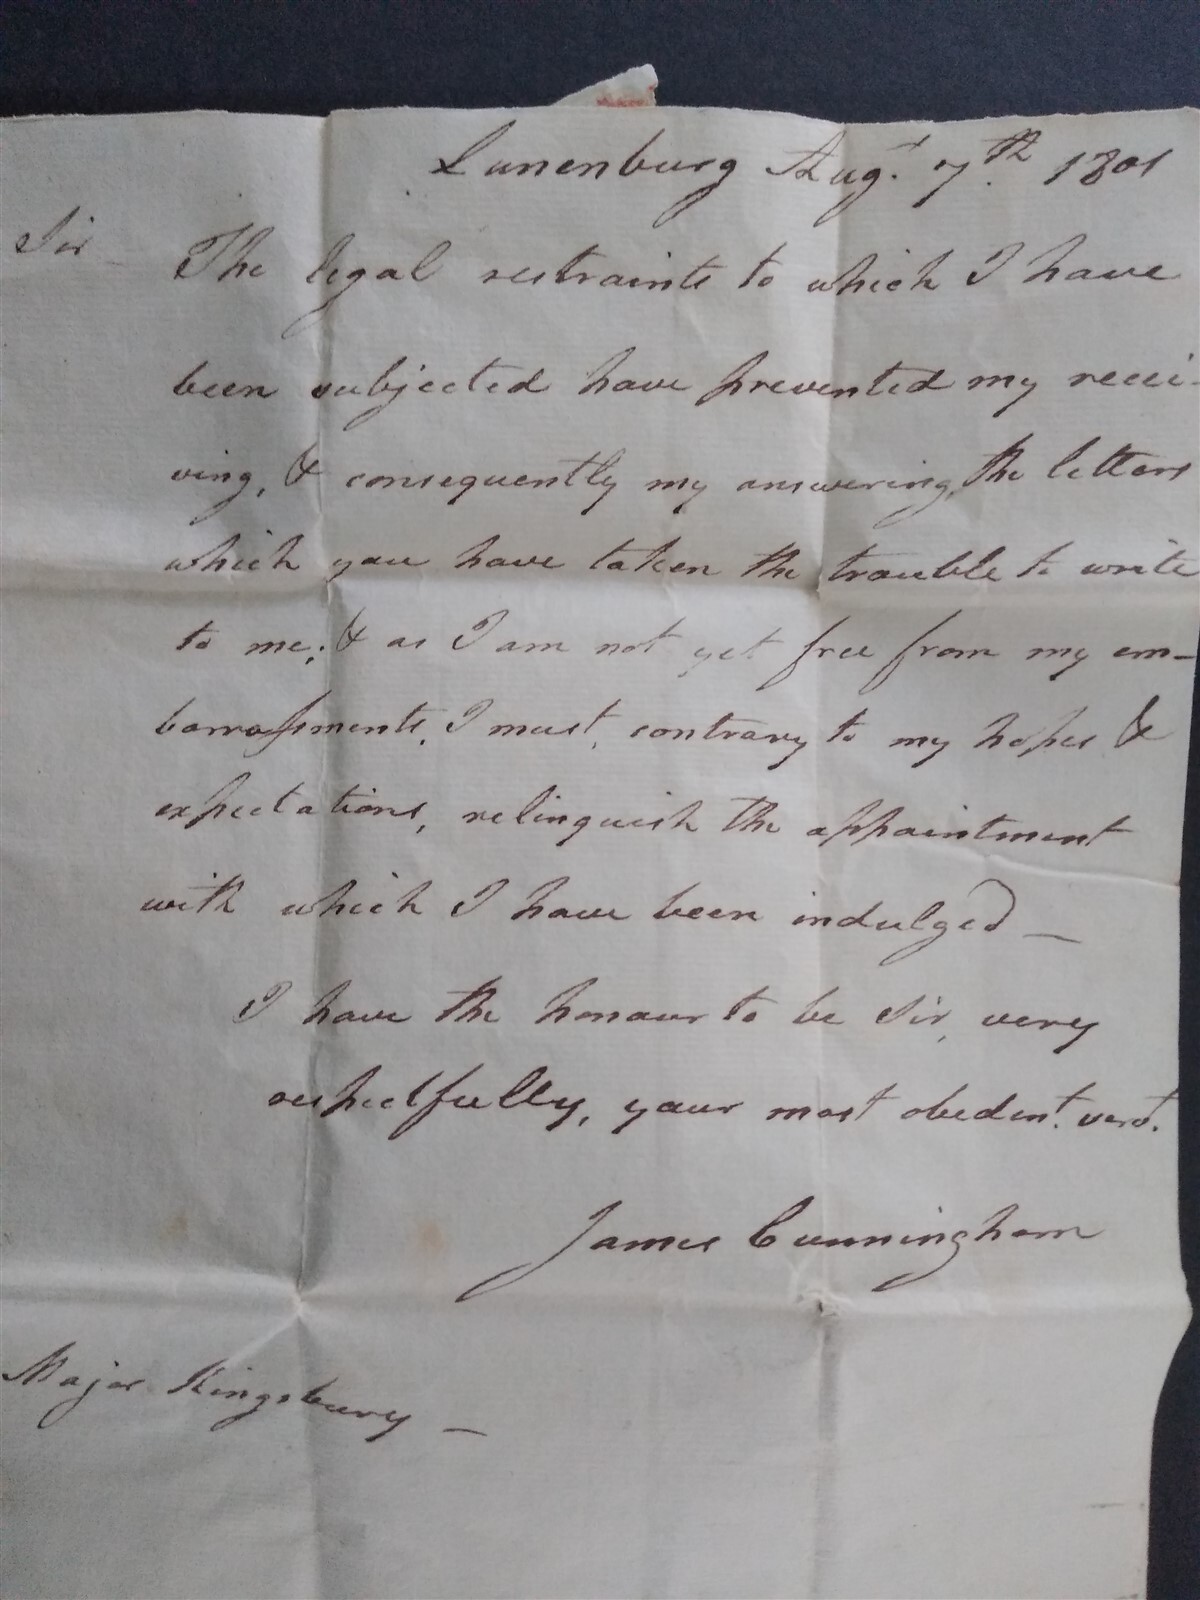 Lunenburg Augt. 7th. 1801
Sir
The legal restraints to which I have
been subjected have prevented my recei-
ving, & consequently my answering, the letters
which you have taken the trouble to write
to me; & as I am not yet free from my em-
barrassments, I must, contrary to my hopes &
expectations, relinquish the appointment
with which I have been indulged —
I have the honour to be Sir, very
respectfully, your most obedent. servt.
James Cunningham
Major Kingsbury —